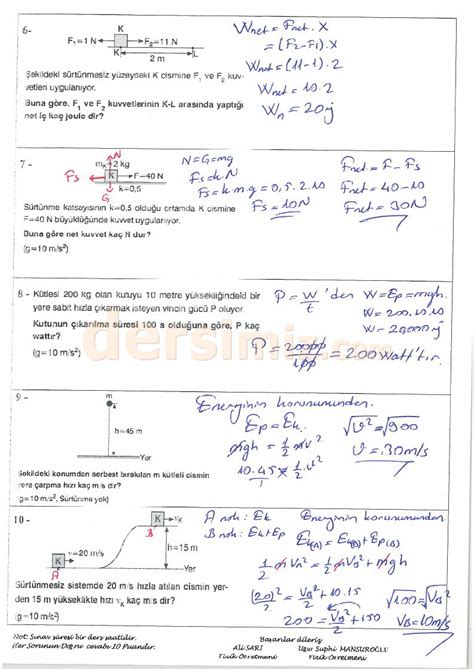 6-
K
F₁=1 N
F₂=11 N
K
L
2 m
Şekildeki sürtünmesiz yüzeydeki K cismine F₁ ve F₂ kuv-
vetleri uygulanıyor.
Buna göre, F₁ ve F₂ kuvvetlerinin K-L arasında yaptığı
net iş kaç joule dir?
Wnet = Fnet . X
= (F2-F1) . X
Wnet = (11-1) . 2
Wnet = 10.2
Wn = 20 j
7 -
N
mK=2 kg
Fs
K
F=40 N
G
k=0,5
Sürtünme katsayısının k=0.5 olduğu ortamda K cismine
F=40 N büyüklüğünde kuvvet uygulanıyor.
Buna göre net kuvvet kaç N dur?
(g=10 m/s²)
N=G=mg
Fs=k.N
Fs = k m g = 0,5.2.10
Fs = 10N
Fnet = F - Fs
Fnet = 40-10
Fnet = 30N
8 - Kütlesi 200 kg olan kutuyu 10 metre yüksekliğindeki bir
yere sabit hızla çıkarmak isteyen vincin gücü P oluyor.
Kutunun çıkarılma süresi 100 s olduğuna göre, P kaç
wattır?
(g=10 m/s²)
P = W/t 'den
W = Ep = mgh.
W = 200.10.10
W = 20000 j
P = 20000/100 = 200 Watt'tır.
dersimiz.com
9 -
m
h=45 m
Yer
Şekildeki konumdan serbest bırakılan m kütleli cismin
yere çarpma hızı kaç m/s dir?
(g=10 m/s², Sürtünme yok)
Enerjinin korunumundan.
Ep = Ek
mgh = 1/2 mV²
10.45 = 1/2 V²
√V² = √900
V = 30m/s
10 -
K
vK
B
v=20 m/s
h=15 m
A
Yer
Sürtünmesiz sistemde 20 m/s hızla atılan cismin yer-
den 15 m yükseklikte hızı vK kaç m/s dir?
(g=10 m/s²)
A nok: Ek
B nok: Ek+Ep
Enerjinin korunumundan.
Ek(A) = Ek(B) + Ep(B)
1/2 mV² = 1/2 mVB² + mgh
(20)²/2 = VB²/2 + 10.15
200 = VB²/2 + 150
√100 = √VB²
VB = 10m/s
Not: Sınav süresi bir ders saatidir.
Her Sorunun Doğru cevabı 10 Puandır.
Başarılar dileriz
Ali SARI
Uğur Suphi MANSUROĞLU
Fizik Öğretmeni
Fizik Öğretmeni